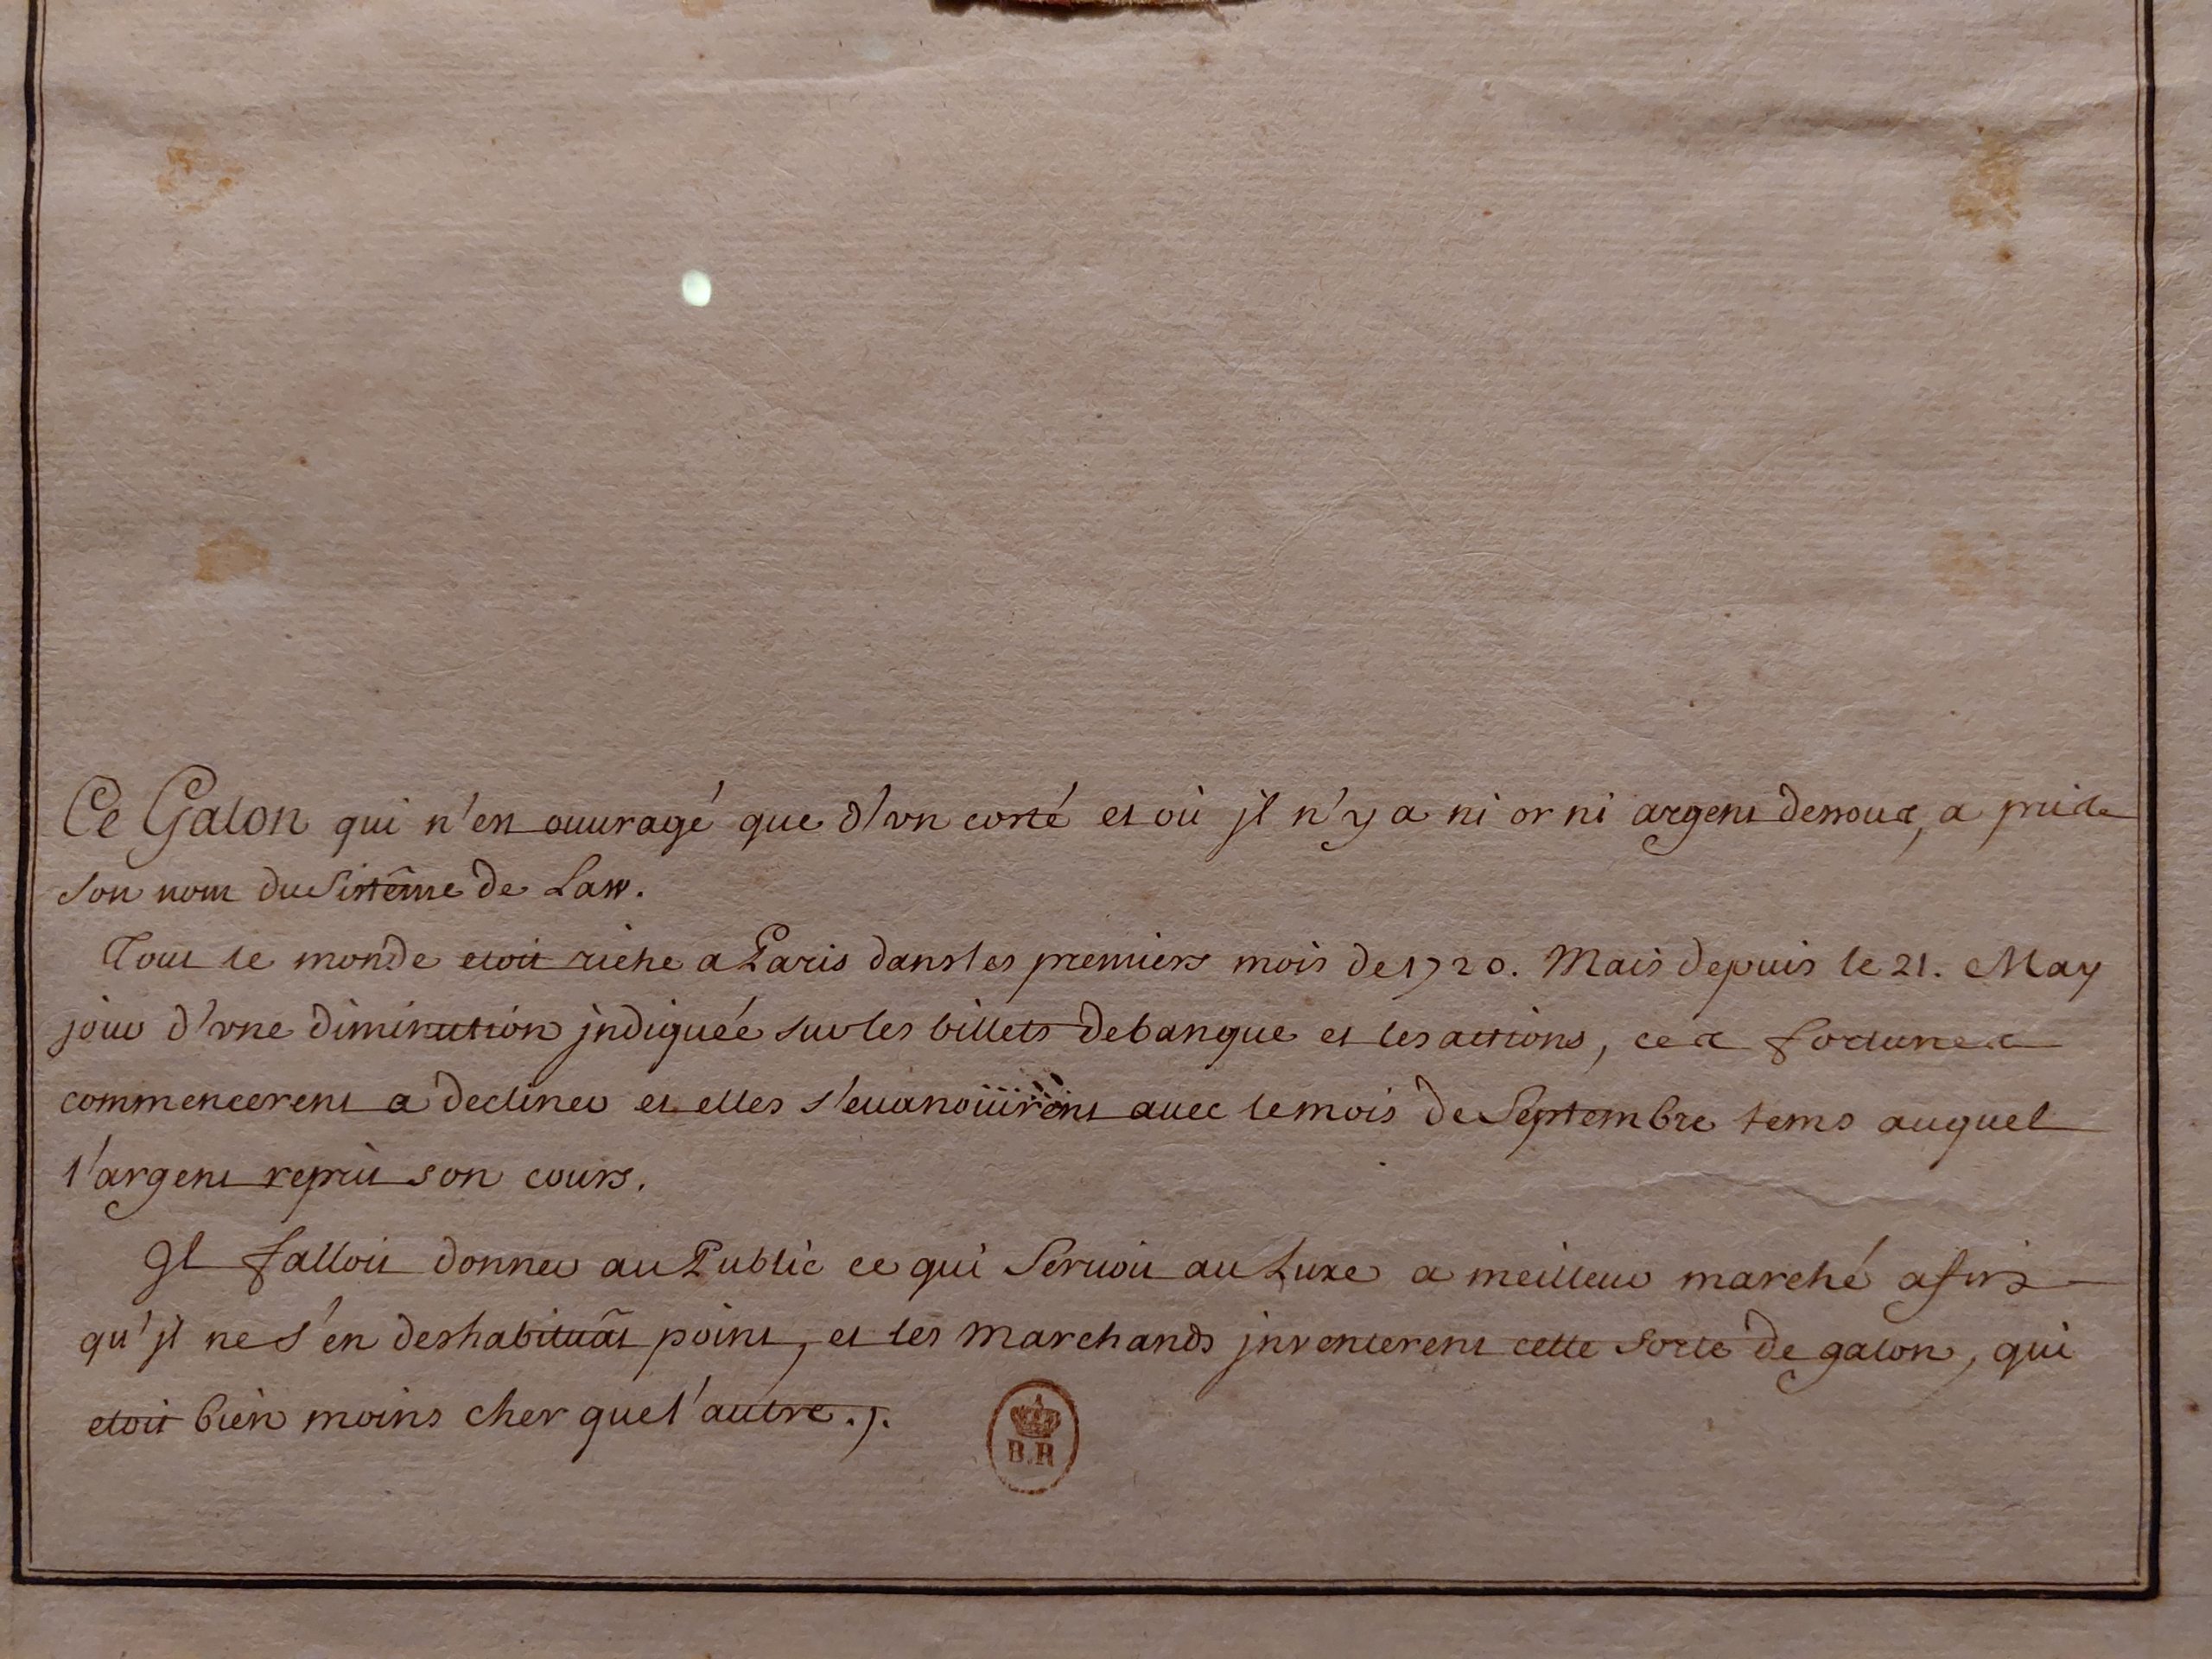 Ce Galon qui n'est ouuragé que d'vn costé et où jl n'y a ni or ni argent dessous, a pris de
son nom du Sistême de Law.
Tout le monde etoit riche a Paris dans les premiers mois de 1720. Mais depuis le 21. May
jour d'vne diminution jndiquée sur les billets de banque et les actions, ces fortunes
commencerent a decliner et elles s'euanoüirent auec le mois de Septembre tems auquel
l'argent reprit son cours.
Il falloit donner au Public ce qui Seruoit au Luxe a meilleur marché afin
qu'jl ne s'en deshabituât point, et les Marchands jnventerent cette sorte de galon, qui
etoit bien moins cher que l'autre./.
B.R